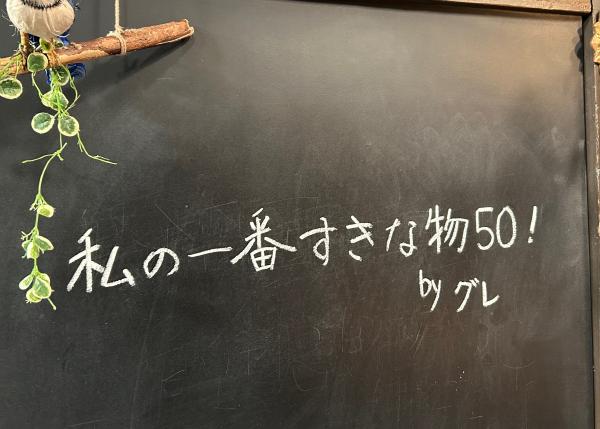 私の一番すきな物50!
by グレ